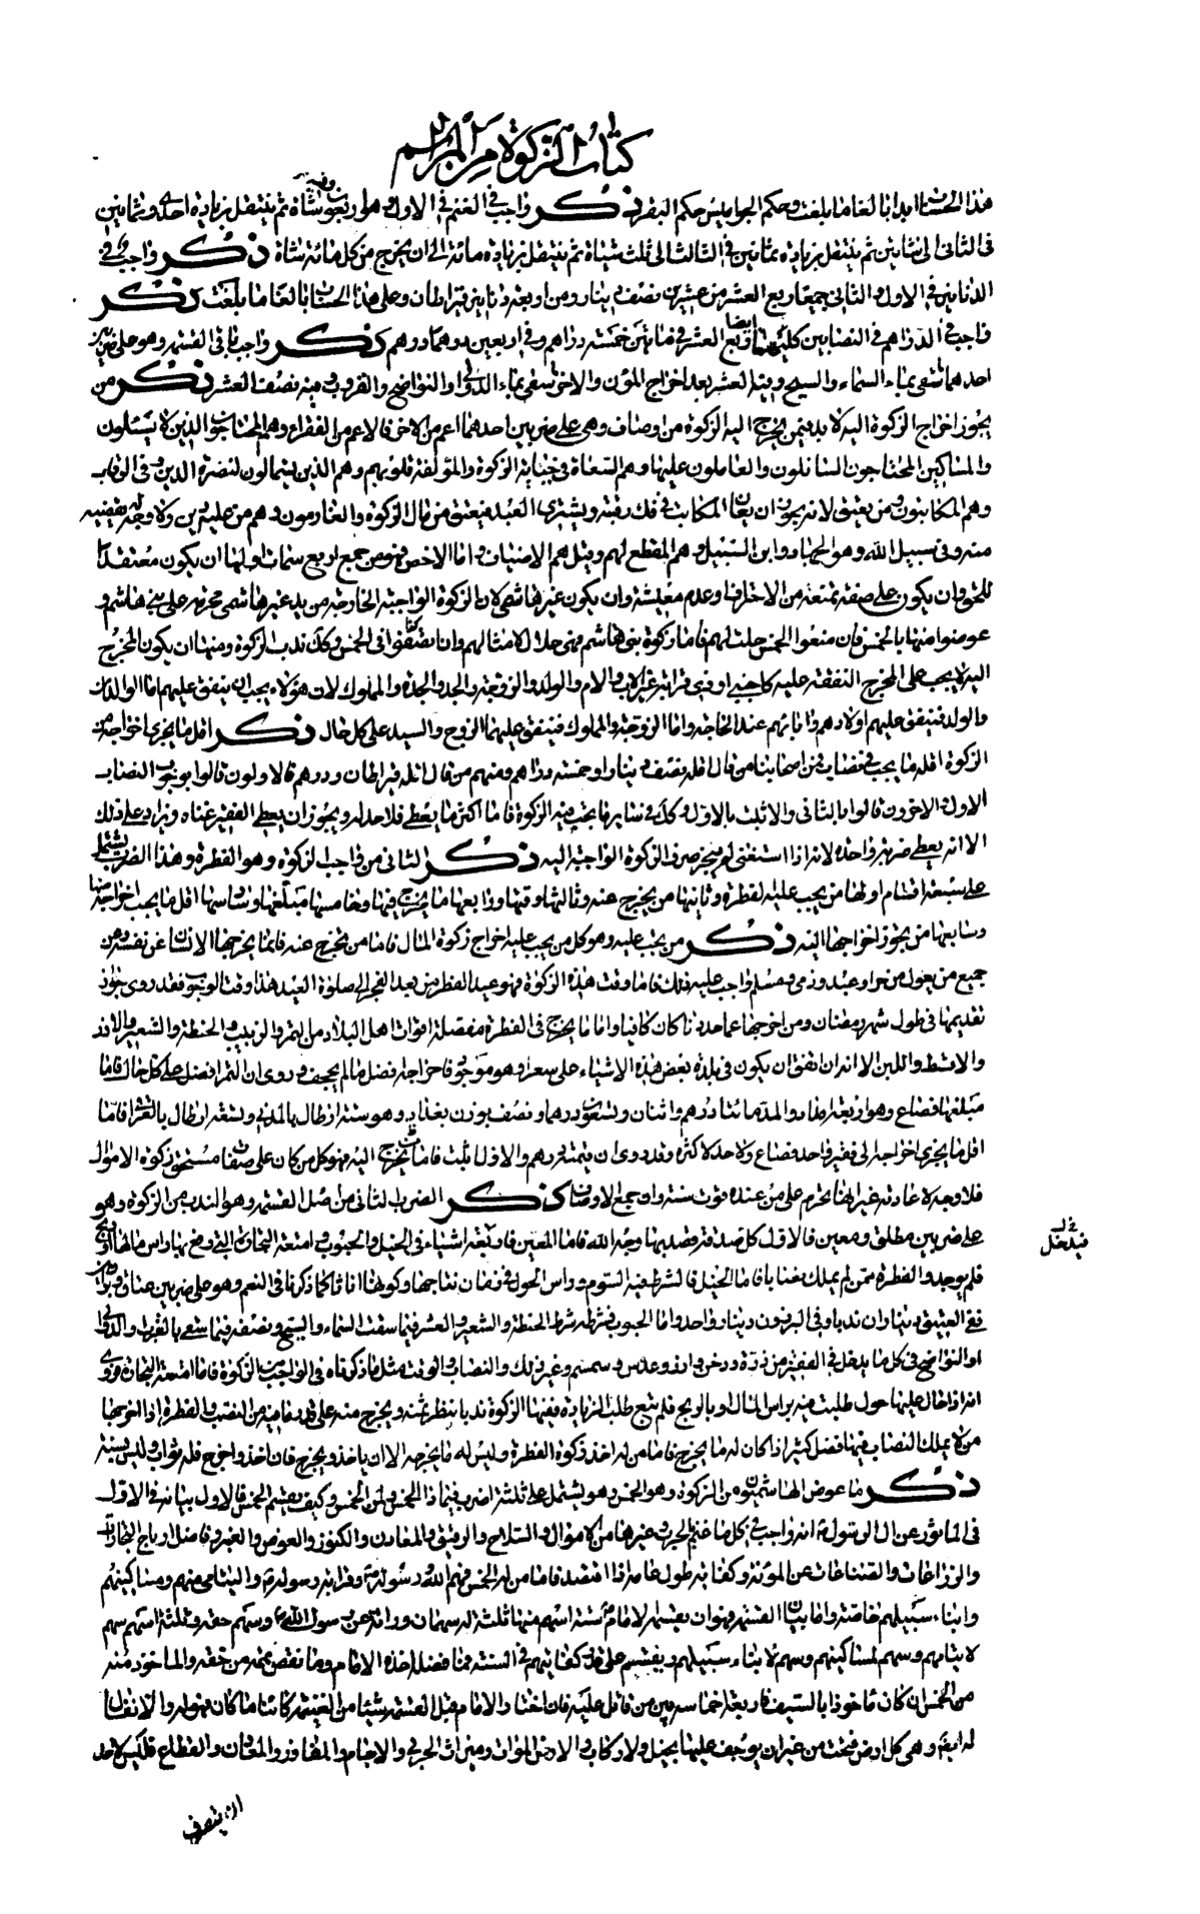 كتاب الزكوة من المراسم
هذا الحساب ابدا بالغا ما بلغت وحكم الجواميس حكم البقر ذكر واجب في الغنم في الاول وهو اربعون شاة وفيه شاة ثم ينتقل بزيادة احدى وثمانين
في الثاني الى شاتين ثم ينتقل بزيادة ثمانين في الثالث الى ثلث شياة ثم ينتقل بزيادة مائة الى ان يخرج من كل مائة شاة ذكر واجب في
الدنانير في الاول والثاني جميعا ربع العشر من عشرين نصف دينار ومن اربعة دنانير قيراطان وعلى هذا الحساب بالغا ما بلغت ذكر
واجب في الدراهم في النصابين كليهما ايضا ربع العشر في مائتين خمسة دراهم وفي اربعين درهما درهم ذكر واجب ما في القسمة وهو على ضربين
احدهما سقى بماء السماء والسيح وفيه العشر بعد اخراج المؤن والاخر سقى بماء الدوالي او النواضح والقروب وفيه نصف العشر ذكر من
يجوز اخراج الزكوة اليه لا بد فيمن يخرج اليه الزكوة من اوصاف وهي على ضربين احدهما اعم من الاخر فالاعم من الفقراء وهم المحتاجون الذين لا يسئلون
والمساكين المحتاجون السائلون والعاملون عليها وهم السعاة في جباية الزكوة والمؤلفة قلوبهم وهم الذين يستمالون لنصرة الدين وفي الرقاب
وهم المكاتبون ومن يعتق لانه يجوز ان يعان المكاتب في فك رقبته ويشترى العبد فيعتق من مال الزكوة والغارمون وهم من عليه دين ولا وجه له يقضيه
منه وفي سبيل الله وهو الجهاد وابن السبيل وهم المنقطع لهم وقيل هم الاضياف واما الاخص فهو من جمع اربع سمات اولها ان يكون معتقدا
للحق وان يكون على صفة تمنعه من الاحتراف وعدم معيشة وان يكون غير هاشمى لان الزكوة الواجبة الخارجة من يد غير هاشمى محرمة على بني هاشم و
عوضوا منها بالخمس فان منعوا الخمس حلت لهم فاما زكوة بنى هاشم فهى حلال لامثالهم وان تصرفوا في الخمس وكك ندب الزكوة ومنها ان يكون المخرج
اليه لا يجب على المخرج النفقة عليه كاجنبى او ذى قرابة غير الاب والام والولد والزوجة والجد والجدة والمملوك لان هؤلاء يجب ان ينفق عليهم اما الوالدان
والولد فينفق عليهم اولادهم وابائهم عند الحاجة واما الزوجة والمملوك فينفق عليهما الزوج والسيد على كل حال ذكر اقل ما يجزى اخراجه من
الزكوة اقله ما يجب في نصاب فمن اصحابنا من قال اقله نصف دينار او خمسة دراهم ومنهم من قال اقله قيراطان ودرهم فالاولون قالوا بوجوب النصاب
الاول والاخرون قالوا بالثاني والاثبت بالاول وكك في سائر ما يجب فيه الزكوة فاما اكثر ما يعطى فلا حد له ويجوز ان يعطى الفقير غناه ويزاد على ذلك
الا انه يعطى ضربة واحدة لانه اذا استغنى لم يجز صرف الزكوة الواجبة اليه ذكر الثاني من واجب الزكوة وهو الفطرة وهذا الضرب يشتمل
على سبعة اقسام اولها من يجب عليه الفطرة وثانيها من يخرج عنه وثالثها وقتها ورابعها ما يخرج فيها وخامسها مبلغها وسادسها اقل ما يجب اخراجه منها
وسابعها من يجوز اخراجها اليه ذكر من يجب عليه وهو كل من يجب عليه اخراج زكوة المال فاما من تخرج عنه فانما يخرجها الانسان عن نفسه وعن
جميع من يعول من حر او عبد وذمى ومسلم واجب عليه ذلك فاما وقت هذه الزكوة فهو عيد الفطر من بعد الفجر الى صلوة العيد هذا وقت الوجوب فقد روى جواز
تقديمها في طول شهر رمضان ومن اخرجها عما حددناه كان كافيا واما ما يخرج في الفطرة مفصلة اقوات اهل البلاد من التمر والزبيب والحنطة والشعير والارز
والاقط واللبن الا انه ان اتفق ان يكون في بلدة بعض هذه الاشياء على سعر وهو موجود فاخراجه افضل ما لم يجحف وروى ان التمر افضل على كل حال فاما
مبلغها فصاع وهو اربعة امداد والمد مائتا درهم واثنان وتسعون درهما ونصف بوزن بغداد وهو ستة ارطال بالمدنى وتسعة ارطال بالعراقى فاما
اقل ما يجزى اخراجه الى فقير واحد فصاع ولا حد لاكثره وقد روى ان قيمته درهم والاول اثبت فاما من تخرج اليه فهو كل من كان على صفات مستحق زكوة الاموال
فلا وجه لاعادته غير انها تحرم على من عنده قوت سنة وان جمع الاوصاف ذكر الضرب الثاني من اصل القسمة وهو الندب من الزكوة وهو
على ضربين مطلق ومعين فالاول كل صدقة قصد بها وجه الله فاما المعين فاربعة اشياء في الخيل والحبوب وامتعة التجارة التي وضع بها راس مالها او ربح
فلم يوجد والفطرة ممن لم يملك غنا باقا الخيل فالشرط فيه السوم وراس الحول في زمان نتاجها وكونها اناثا كما ذكرنا في النعم وهو على ضربين عتاق وبراذين
ففى العتيق ديناران ندبا وفى البرذون دينار واحد واما الحبوب فشرطه شرط الحنطة والشعير والعشر فيما سقت السماء والسيح ونصفه فيما سقى بالغرب والدوالي
او النواضح في كل ما يدخل في القفيز من ذرة ودخن وارز وعدس وسمسم وغير ذلك والنصاب والوقت مثل ما ذكرناه في الواجب الزكوة فاما امتعة التجارة فروى
انه اذا حال عليها حول طلبت فيه براس المال او بالربح فلم تبع طلبا للزيادة ففيها الزكوة ندبا ينظر ثمنه ويخرج منه على قدر ما فيه من النصب والفطرة اذا اخرجها
من لا يملك النصاب فيها فضل كثير اذا كان له ما يخرج فاما من له اخذ زكوة الفطرة وليس له ما يخرجه الا ان ياخذ ويخرج فان اخذ واخرج فله ثواب وليس بسنة
ذكر ما عوض الهاشميون من الزكوة وهو الخمس وهو يشتمل على ثلثة اضرب فيما ذا الخمس ولمن الخمس وكيف يقسم الخمس فالاول بيانه في الاول
في الماثور عن ال الرسول ع انه واجب في كل ما غنم بالحرب وغيرها من الاموال والسلاح والرقيق والمعادن والكنوز والغوص والعنبر وفاضل ارباح التجارات
والزراعات والصناعات عن المؤنة وكفاية طول عامه اذا اقتصد فاما من له الخمس فهم الله ورسوله وقرابة رسوله واليتامى منهم ومساكينهم
وابناء سبيلهم خاصة واما بيان القسمة فهو ان يقسمه الامام ع ستة اسهم منها ثلثة له سهمان وراثة عن رسول الله ص وسهم حقه وثلثة اسهم سهم
لايتامهم وسهم لمساكينهم وسهم لابناء سبيلهم ويقسم على قدر كفايتهم في السنة فما فضل اخذه الامام وما نقص تممه من حقه والماخوذ منه
من الخمس ان كان ماخوذا بالسيف فاربعة اخماسه بين من قاتل عليه فان اختار الامام قبل القسمة شيئا من الغنيمة كائنا ما كان فهو له والانفال
له ايضا وهى كل ارض فتحت من غير ان يوجف عليها بخيل ولا ركاب والارض الموات وميراث الحربى والاجام والمفاوز والمعادن والقطايع فليس لاحد
ان يتصرف